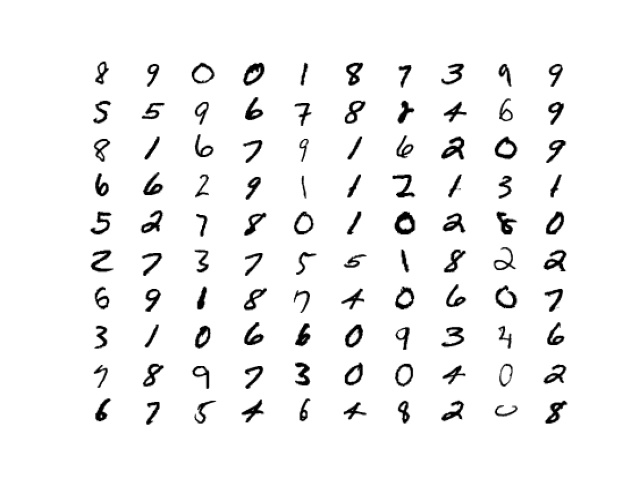 8 9 0 0 1 8 7 3 9 9
5 5 9 6 7 8 8 4 6 9
8 1 6 7 9 1 6 2 0 9
6 6 2 9 1 1 2 1 3 1
5 2 7 8 0 1 0 2 8 0
2 7 3 7 5 5 1 8 2 2
6 9 1 8 7 4 0 6 0 7
3 1 0 6 6 0 9 3 4 6
7 8 9 7 3 0 0 4 0 2
6 7 5 4 6 4 8 2 0 8